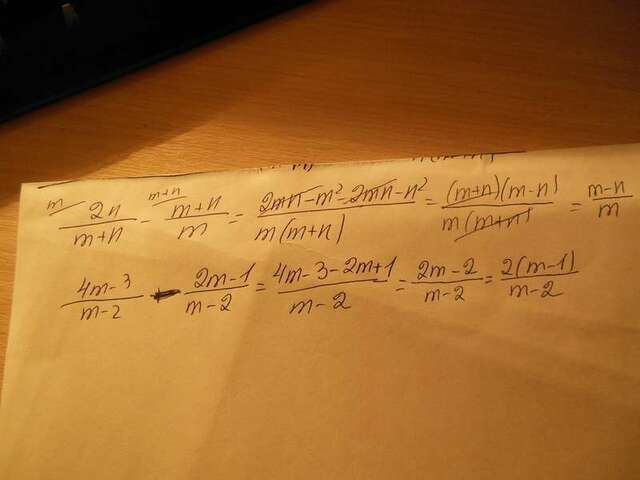 m/ 2n/(m+n) - m+n/ (m+n)/m = (2mn-m²-2mn-n²)/(m(m+n)) = ((m+n)(m-n))/(m(m+n)) = (m-n)/m
(4m-3)/(m-2) - (2m-1)/(m-2) = (4m-3-2m+1)/(m-2) = (2m-2)/(m-2) = (2(m-1))/(m-2)